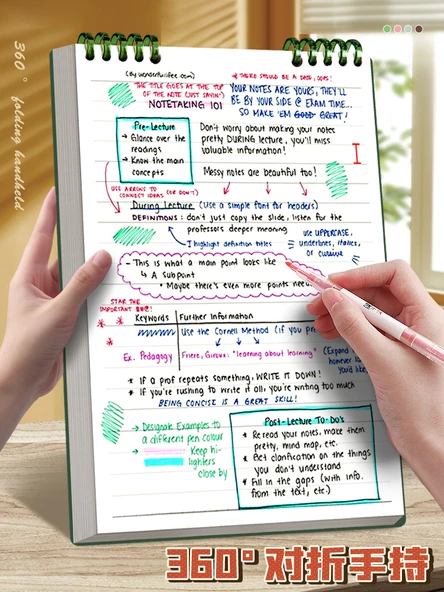 360° folding handheld
(By wonderfulifee.com)
* THERE SHOULD BE A DATE, DUDES!
"THE TITLE GOES AT THE TOP
OF THE NOTE (JUST SAYIN')
NOTETAKING 101
YOUR NOTES ARE YOURS, THEY'LL
BE BY YOUR SIDE @ EXAM TIME...
SO MAKE 'EM GOOD GREAT!
Pre-Lecture
→ Glance over the
readings
→ Know the main
concepts
Don't worry about making your notes
pretty DURING lecture, you'll miss
valuable information!
Messy notes are beautiful too!
USE ARROWS TO
CONNECT IDEAS (OR DON'T)
During Lecture (Use a simple font for headers)
DEFINITIONS: don't just copy the slide, listen for the
professors deeper meaning
I highlight definition titles
use UPPERCASE,
underlines, italics,
or cursive
- This is what a main point looks like
↳ A subpoint
• Maybe there's even more points
STAR THE
IMPORTANT
Keywords
Further Information
Use the Cornell Method (if you
Ex. Pedagogy
Friere, Giroux: "learning about learning"
(Expand
however
You'd like
* If a prof repeats something, WRITE IT DOWN!
* If you're rushing to write it all, you're writing too much
BEING CONCISE IS A GREAT SKILL!
→ Designate Examples to
a different pen colour
→ Keep hi-
lighters
close by
Post-Lecture To-Do's
* Re read your notes, make them
pretty, mind map, etc.
* Get clarification on the things
you don't understand
* Fill in the gaps (with info.
from the text, etc.)
360°对折手持